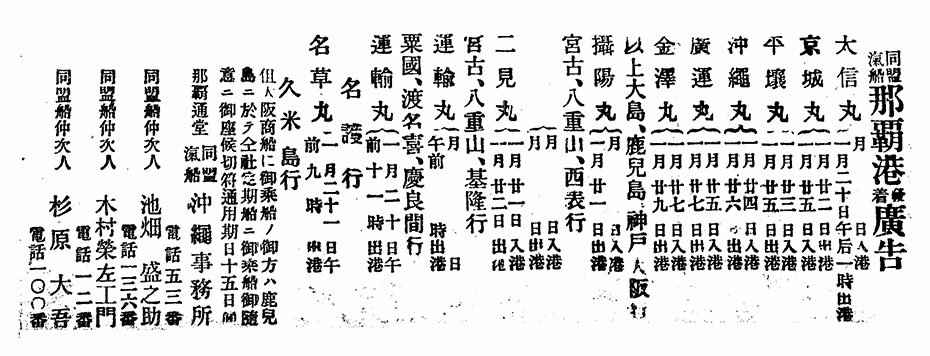 同盟汽船那覇港發着廣告
太信丸 一月 日入港 一月二十日午后一時出港
京城丸 一月廿二日出港 一月廿三日入港
平壤丸 一月廿五日入港 一月廿五日出港
沖繩丸 一月廿六日入港
廣運丸 一月廿五日入港 一月廿七日出港
金澤丸 一月廿七日入港 一月廿九日出港
以上大島、鹿兒島、神戸、大阪行
攝陽丸 一月廿一日入港
宮古、八重山、西表行
月 日入港 月 日出港
二見丸 一月廿一日入港 一月廿二日出港
宮古、八重山、基隆行
運輸丸 月 日 午前 時出港
粟國、渡名喜、慶良間行
名護行
運輸丸 一月二十日午前十一時出港
名草丸 一月二十一日午前九時出港
久米島行
但大阪商船に御乘船ノ御方ハ鹿兒
島ニ於テ仝社定期船ニ御乘船御隨
意ニ御座候切符通用期日十五日間
那覇通堂 同盟汽船 沖繩事務所
電話五三番
同盟船仲次人 池畑盛之助
電話一三六番
同盟船仲次人 木村榮左工門
電話一一二番
同盟船仲次人 杉原大吾
電話一〇〇番